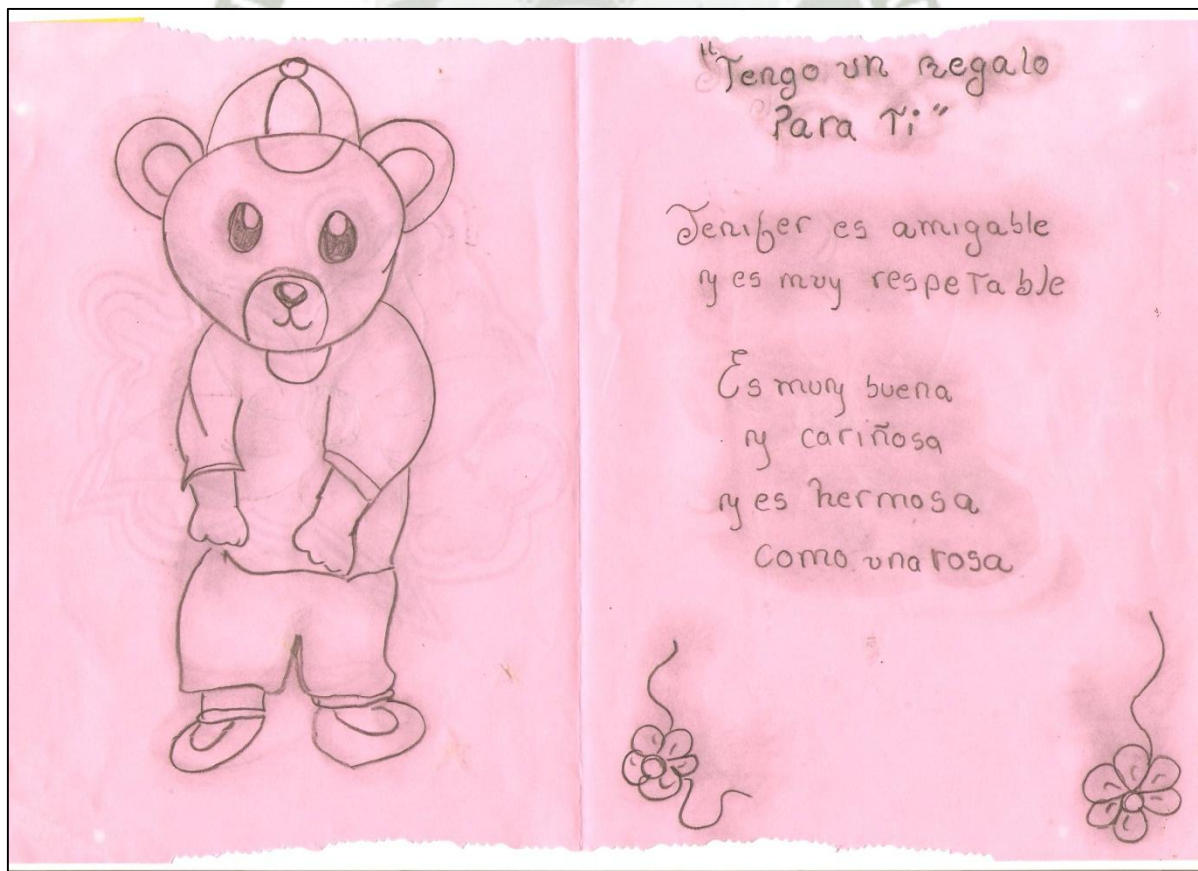 "Tengo un regalo
Para Ti"
Jenifer es amigable
y es muy respetable
Es muy buena
y cariñosa
y es hermosa
como una rosa